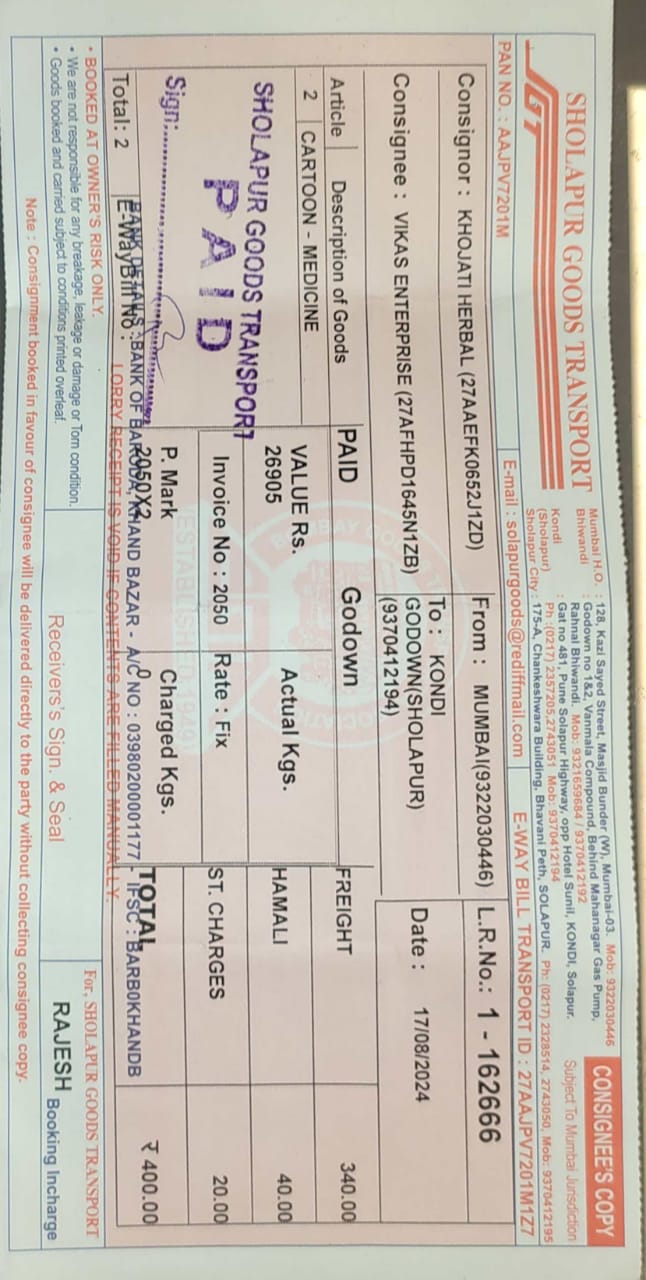 SGT
SHOLAPUR GOODS TRANSPORT
Mumbai H.O. : 128, Kazi Sayed Street, Masjid Bunder (W), Mumbai-03. Mob: 9322030446
Bhiwandi : Godown no 1&2, Vanmala Compound, Behind Mahanagar Gas Pump,
Rahnal Bhiwandi. Mob: 9321659684 / 9370412192
Kondi : Gat no 481, Pune Solapur Highway, opp Hotel Sunil, KONDI, Solapur.
(Sholapur) Ph :(0217) 2357205,2743051 Mob: 9370412194
Sholapur City : 175-A, Chankeshwara Building, Bhavani Peth, SOLAPUR. Ph: (0217) 2328514, 2743050, Mob: 9370412195
CONSIGNEE'S COPY
Subject To Mumbai Jurisdiction
PAN NO. : AAJPV7201M
E-mail : solapurgoods@rediffmail.com
E-WAY BILL TRANSPORT ID : 27AAJPV7201M1Z7
Consignor : KHOJATI HERBAL (27AAEFK0652J1ZD)
From : MUMBAI(9322030446)
L.R.No.: 1 - 162666
Consignee : VIKAS ENTERPRISE (27AFHPD1645N1ZB)
To : KONDI
GODOWN(SHOLAPUR)
(9370412194)
Date : 17/08/2024
Article Description of Goods PAID Godown FREIGHT 340.00
2 CARTOON - MEDICINE
VALUE Rs. Actual Kgs. HAMALI 40.00
26905
SHOLAPUR GOODS TRANSPORT
PAID
Sign:
Invoice No : 2050 Rate : Fix ST. CHARGES 20.00
P. Mark Charged Kgs.
2050X2 0
TOTAL ₹ 400.00
BOMBAY GOODS
ESTABLISHED 1949
Total: 2 E-WayBill No :
BANK DETAILS :BANK OF BARODA, KHAND BAZAR - A/C NO : 03980200001177 - IFSC : BARB0KHANDB
LORRY RECEIPT IS VOID IF CONTENTS ARE FILLED MANUALLY.
• BOOKED AT OWNER'S RISK ONLY.
• We are not responsible for any breakage, leakage or damage or Torn condition.
• Goods booked and carried subject to conditions printed overleaf.
Receivers's Sign. & Seal
For, SHOLAPUR GOODS TRANSPORT
RAJESH Booking Incharge
Note : Consignment booked in favour of consignee will be delivered directly to the party without collecting consignee copy.